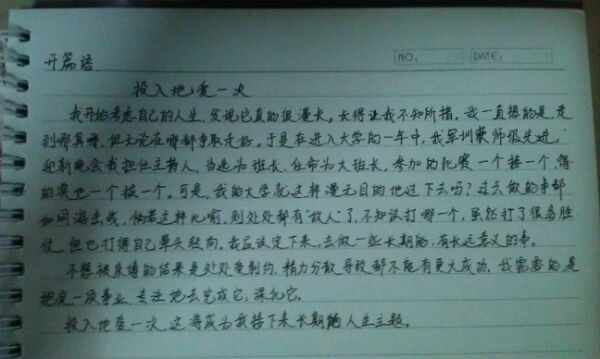 NO:
DATE:
开篇语
投入地爱一次
我开始考虑自己的人生,发现它真的很漫长,长得让我不知所措。我一直想的是走
到哪算哪,但无论在哪都争取走好。于是在进入大学的一年中,我军训获师级先进,
迎新晚会我担任主持人,当选为班长,任命为大班长,参加的比赛一个接一个,得
的奖也一个接一个。可是,我的大学就这样漫无目的地过下去吗?过去做的事都
如同游击战,倘若这样比喻,则处处都有“敌人”了,不知该打哪一个,虽然打了很多胜
仗,但也打得自己晕头转向,我应该定下来,去做一些长期的,有长远意义的事。
不想被束缚的结果是处处受制约,精力分散导致都不能有更大成功。我需要的是
把定一项事业,专注地去完成它,深化它。
投入地爱一次,这将成为我接下来长期的人生主题。